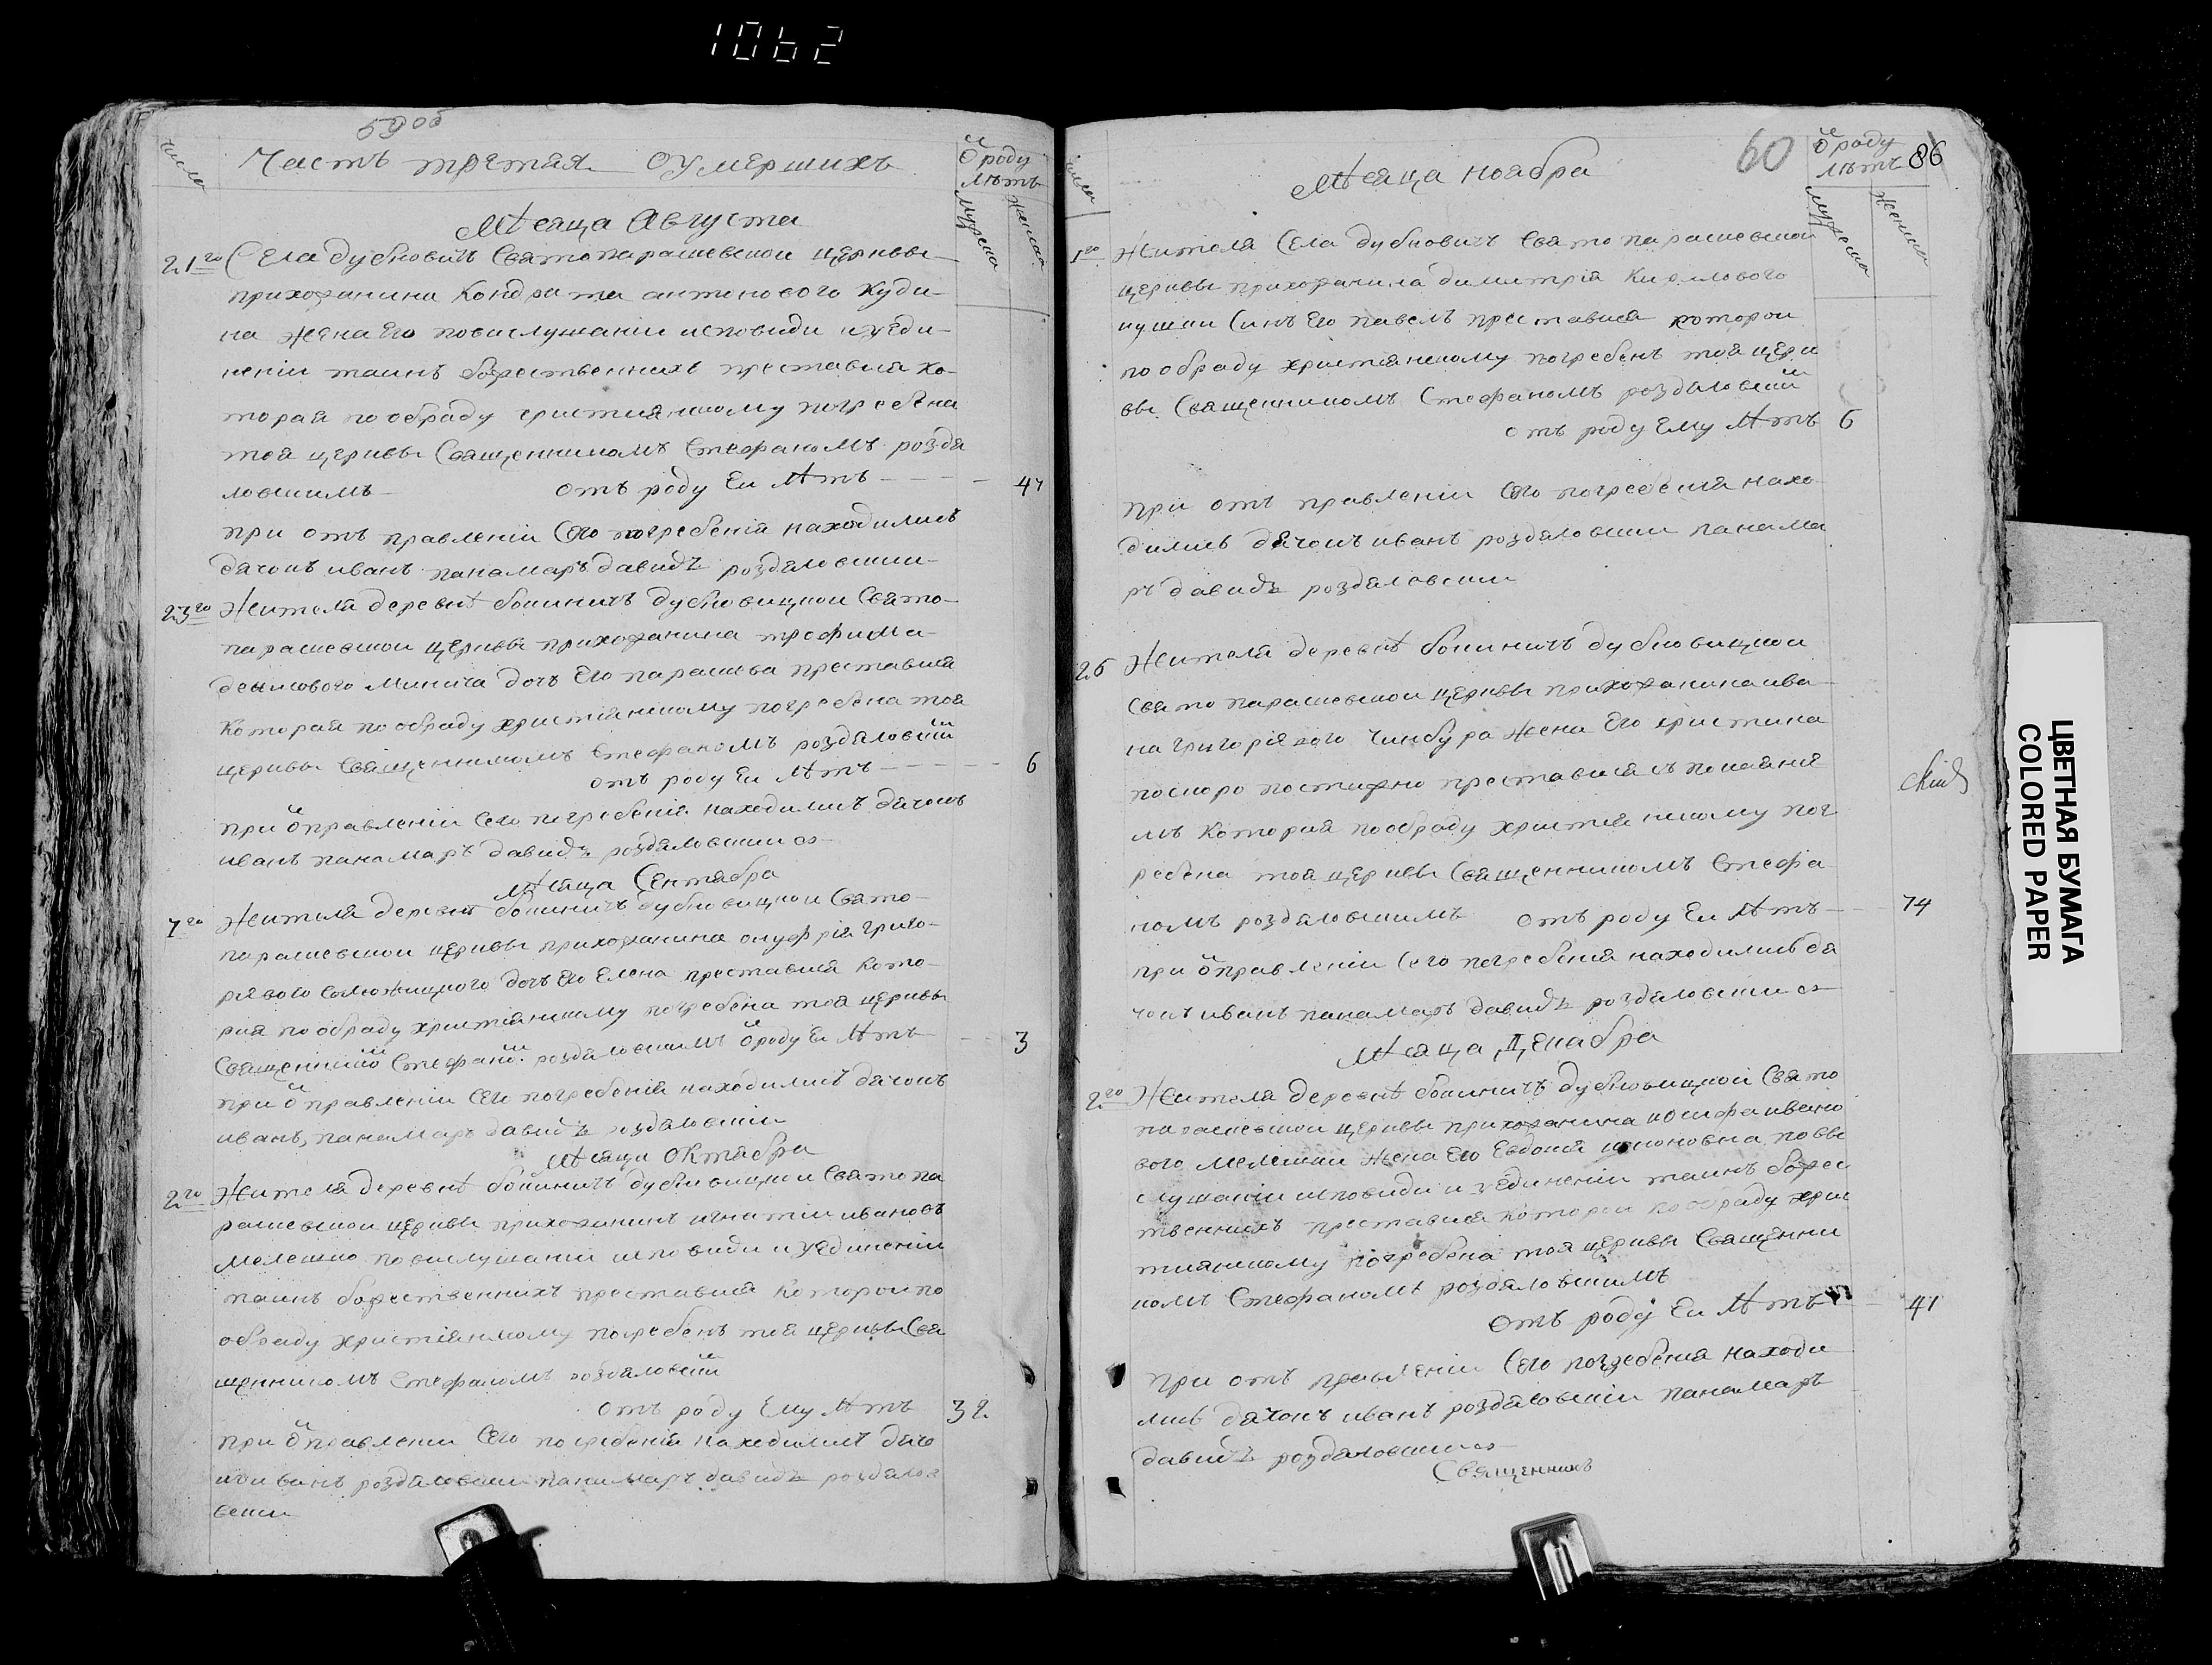 1062
59 об
число
Часть третая О Умершихъ
ѿ роду
лѣтъ
мужеска
женска
Мѣсяца Августа
21го Села дубновичъ Святопараскевской церквы
прихожанина Кондрата антонового Куди-
на жена Его повислушанiи исповиди и
ненiи таинъ божественнихъ преставися ко-
торая по обряду християнскому погребена
тоя церквы Священникомъ Стефаномъ розда
ловскимъ отъ роду Еи лѣтъ 47
при отъ правленiи Сего погребенiя находились
дячокъ иванъ панамаръ давидъ роздяловскии
23го Жителя деревнѣ бокиничъ дубновицкои Свято-
параскевскои церквы прихожанина трофима
денисового Минича дочъ Его параскева преставися
Которая по обряду християнскому погребена тоя
церквы Священникомъ Стефаномъ роздяловскiм
отъ роду Еи лѣтъ 6
при ѿправленiи Сего погребенiя находились дячокъ
иванъ панамаръ давидъ роздяловскии
Мѣсяца Сентября
7го Жителя деревнѣ бокиничъ дубновицкои Свято-
параскевскои церквы прихожанина онуфрiя григо-
риявого дочъ Его Елена преставися Кото-
рая по обряду християнскому погребена тоя церквы
Священникѡ Стефанѡ роздяловскимъ ѿ роду Еи лѣтъ 3
при ѿправленiи Сего погребенiя находились дячокъ
иванъ, панамаръ давидъ роздяловскiи
Мѣсяца Октября
2го Жителя деревнѣ бокиничъ дубновицкои Святопа
раскевскои церквы прихожанинъ игнатiи ивановъ
Мелешко повислушанiи исповиди и
таинъ божественнихъ преставися Которои по
обряду християнскому погребенъ тоя церквы Свя
щенникомъ Стефаномъ роздяловскiм
отъ роду Ему лѣтъ 32
при ѿправленiи Сего погребенiя находились дячо
къ иванъ роздяловскии панамаръ давидъ роздялов
скии
число
Мѣсяца ноября
60
ѿ роду
лѣтъ
86
мужеска
женска
1го Жителя Села дубновичъ Свято параскевскои
церквы прихожанина димитрiя Кирилового
кушки Синъ Его павелъ преставися которои
по обряду християнскому погребенъ тоя церк
вы Священникомъ Стефаномъ роздяловскiм
отъ роду Ему лѣтъ 6
при отъ правленiи Сего погребенiя нахо-
дились дячокъ иванъ роздяловскии панама
ръ давидъ роздяловскии
26 Жителя деревнѣ бокиничъ дубновицкои
Свято параскевскои церквы прихожанина ива-
на григорiявого Чинбура жена Его христина
поскоро постижно преставися съ покаянiе
мъ Которая по обряду християнскому пог
ребена тоя церквы Священникомъ Стефа
номъ роздяловскимъ отъ роду Еи лѣтъ 74
при ѿправленiи Сего погребенiя находились дя
чокъ иванъ панамаръ давидъ роздяловскии
Мѣсяца Декабря
2го Жителя деревнѣ бокиничъ дубновицкой Свято
параскевскои церквы прихожанина иосифа ивано
вого Мелешки жена Его Евдокiя повы
слушанiи исповиди и таинъ божес
твеннихъ преставися Котораа по обряду хрис
тиянскому погребена тоя церквы Священни
комъ Стефаномъ роздяловскимъ
отъ роду Еи лѣтъ 41
при отъ правленiи Сего погребенiя находи
лись дячокъ иванъ роздяловскiи панамаръ
давидъ роздяловскии
Священникъ
ЦВЕТНАЯ БУМАГА
COLORED PAPER